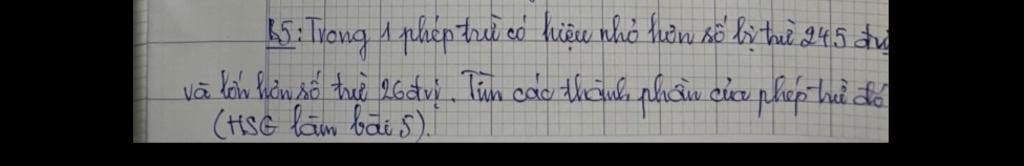 B5: Trong 1 phép trừ có hiệu nhỏ hơn số bị trừ 245 đvị
và lớn hơn số trừ 26 đvị. Tìm các thành phần của phép trừ đó
(HSG làm bài 5).